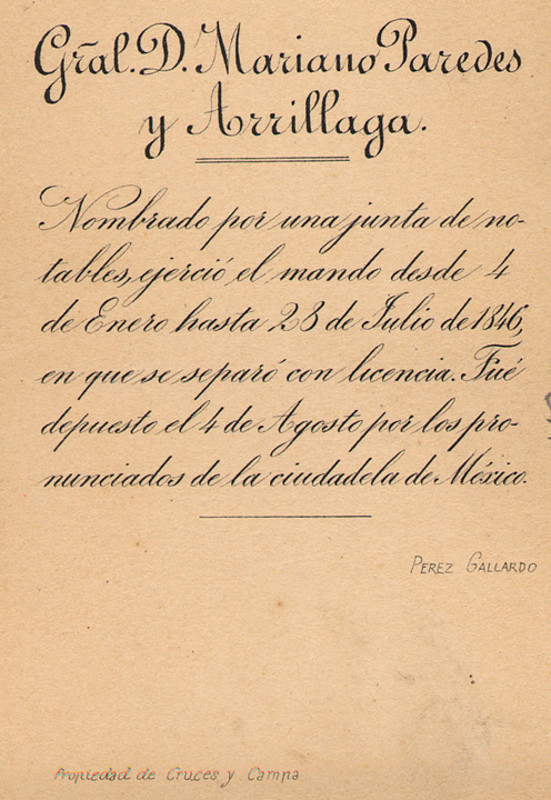 Gral. D. Mariano Paredes
y Arrillaga.
Nombrado por una junta de no-
tables, ejerció el mando desde 4
de Enero hasta 28 de Julio de 1846,
en que se separó con licencia. Fué
depuesto el 4 de Agosto por los pro-
nunciados de la ciudadela de México.
PEREZ GALLARDO
Propiedad de Cruces y Campa